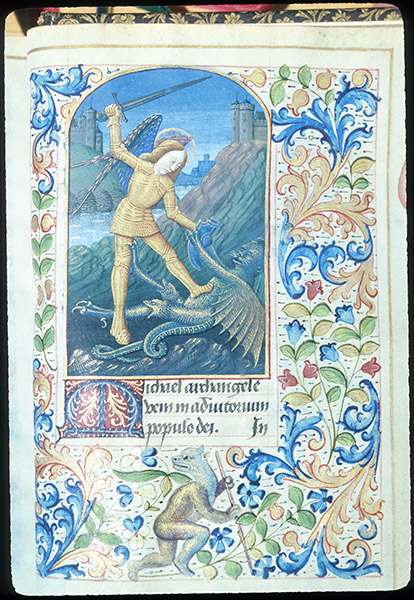 Michael archangele
veni in adiutorium
populo dei. In